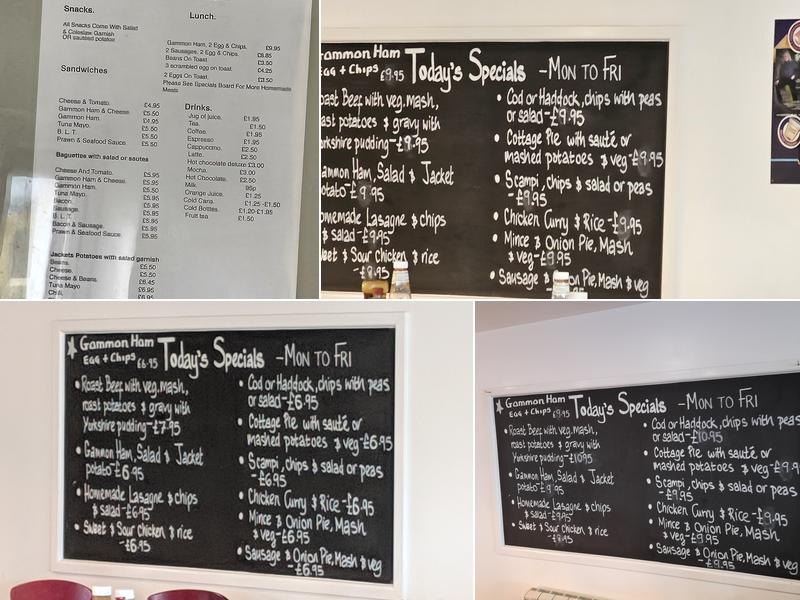 Snacks.
All Snacks Come With Salad
& Coleslaw Garnish
OR sauteed potatoe
Sandwiches
Cheese & Tomato. £4.95
Gammon Ham & Cheese £5.50
Gammon Ham. £4.95
Tuna Mayo. £5.50
B. L. T. £5.50
Prawn & Seafood Sauce. £5.50
Baguettes with salad or sautes
Cheese And Tomato. £5.95
Gammon Ham & Cheese. £5.95
Gammon Ham. £5.95
Tuna Mayo. £5.95
Bacon. £5.95
Sausage. £5.95
B. L. T. £5.95
Bacon & Sausage. £5.95
Prawn & Seafood Sauce. £5.95
Jackets Potatoes with salad garnish
Beans. £5.50
Cheese. £5.50
Cheese & Beans. £6.45
Tuna Mayo £6.95
Chili. £6.95
Lunch.
Gammon Ham, 2 Egg & Chips. £9.95
2 Sausages, 2 Egg & Chips. £6.85
Beans On Toast. £3.50
3 scrambled egg on toast. £4.25
2 Eggs On Toast. £3.50
Please See Specials Board For More Homemade
Meals
Drinks.
Jug of juice. £1.95
Tea. £1.50
Coffee. £1.95
Espresso £1.95
Cappuccino. £2.50
Latte. £2.50
Hot chocolate deluxe £3.00
Mocha. £3.00
Hot Chocolate. £2.50
Milk. 95p
Orange Juice. £1.25
Cold Cans. £1.25 -£1.50
Cold Bottles. £1.20-£1.95
Fruit tea £1.50
ammon Ham
Egg + Chips £9.95
Today's Specials - Mon to Fri
oast Beef with veg. mash,
oast potatoes & gravy with
orkshire pudding-£9.95
ammon Ham, Salad & Jacket
otato-£9.95
omemade Lasagne & chips
& salad-£9.95
weet & Sour Chicken & rice
-£8.95
• Cod or Haddock, chips with peas
or salad-£9.95
• Cottage Pie with sauté or
mashed potatoes & veg-£9.95
• Scampi, chips & salad or peas
-£9.95
• Chicken Curry & Rice-£9.95
• Mince & Onion Pie, Mash
& veg-£9.95
• Sausage & Onion Pie, Mash & veg
Gammon Ham
Egg + Chips £6.95
Today's Specials - Mon to Fri
• Roast Beef with veg. mash,
roast potatoes & gravy with
Yorkshire pudding-£7.95
• Gammon Ham, Salad & Jacket
potato-£6.95
• Homemade Lasagne & chips
& salad-£6.95
• Sweet & Sour Chicken & rice
-£6.95
• Cod or Haddock, chips with peas
or salad-£6.95
• Cottage Pie with sauté or
mashed potatoes & veg-£6.95
• Scampi, chips & salad or peas
-£6.95
• Chicken Curry & Rice-£6.95
• Mince & Onion Pie, Mash
& veg-£6.95
• Sausage & Onion Pie, Mash & veg
-£6.95
Gammon Ham
Egg + Chips £9.95
Today's Specials - Mon to Fri
• Roast Beef with veg. mash,
roast potatoes & gravy with
Yorkshire pudding-£10.95
• Gammon Ham, Salad & Jacket
potato-£9.95
• Homemade Lasagne & chips
& salad-£9.95
• Sweet & Sour Chicken & rice
-£8.95
• Cod or Haddock, chips with peas
or salad-£10.95
• Cottage Pie with sauté or
mashed potatoes & veg-£9.9
• Scampi, chips & salad or peas
-£9.95
• Chicken Curry & Rice-£9.95
• Mince & Onion Pie, Mash
& veg-£9.95
• Sausage & Onion Pie, Mash & veg
-£9.95